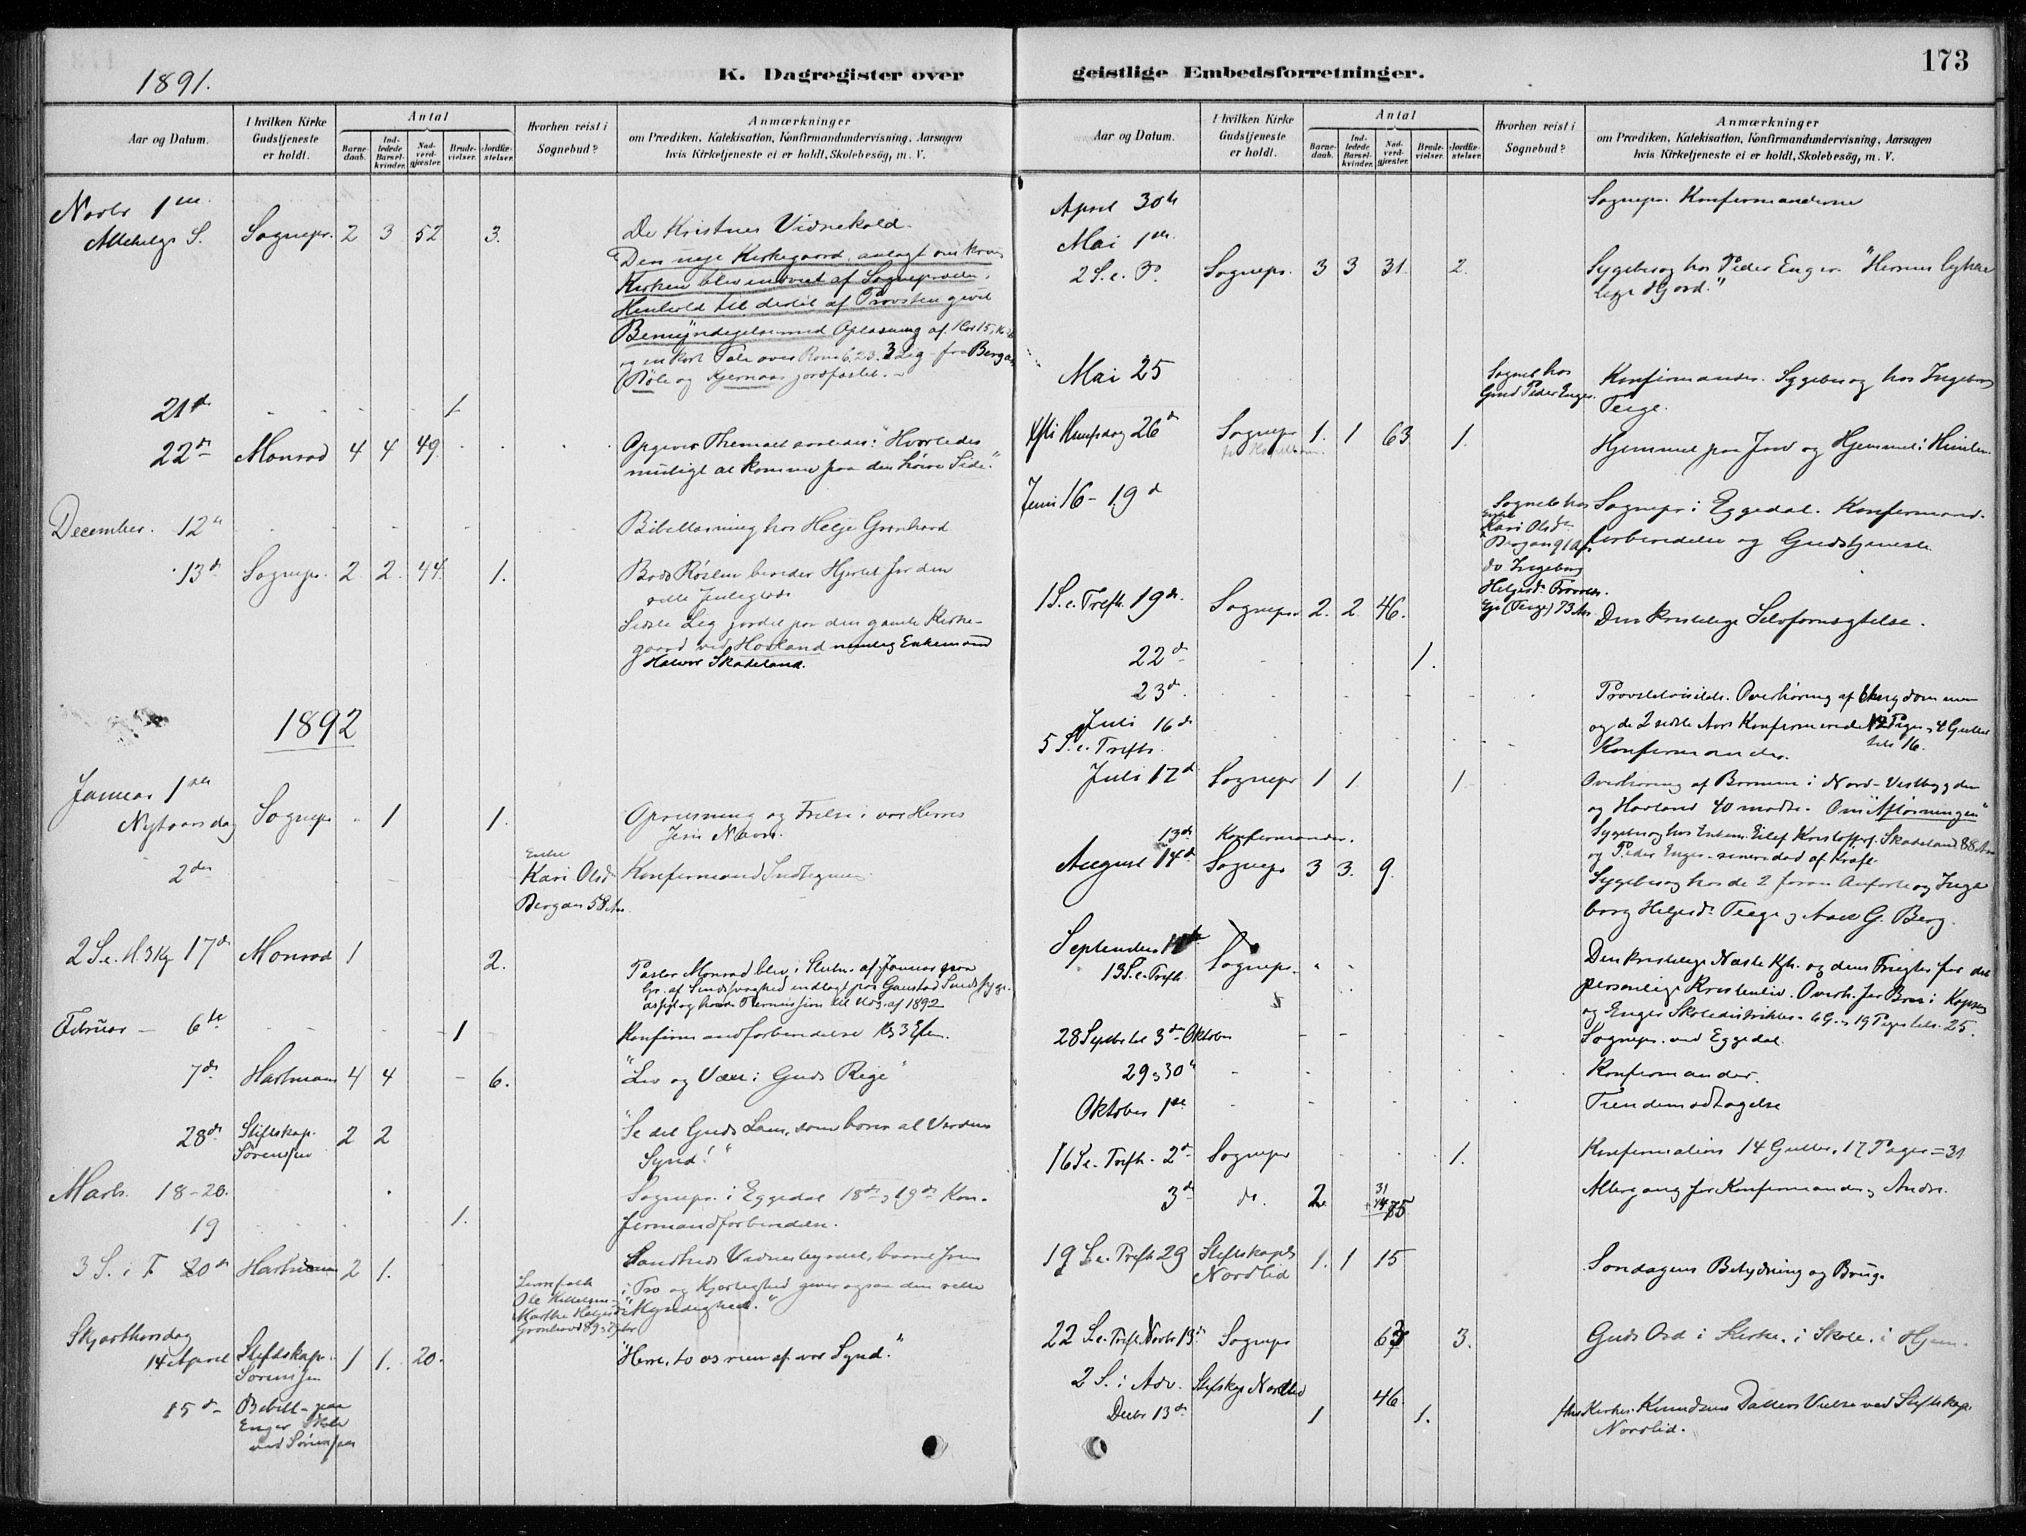 1891.
K. Dagregister over
Aar og Datum.
I hvilken Kirke Gudstjeneste er holdt.
Antal
Barnedaab.
Indledede Barselkvinder.
Nadverdgjester.
Brudevielser.
Jordfæstelser.
Hvorhen reist i Sognebud?
Anmærkninger
om Prædiken, Katekisation, Konfirmandundervisning, Aarsagen
hvis Kirketjeneste ei er holdt, Skolebesög, m. V.
Novbr 1ste
Allehelgs S. Sognepr. 2 3 52 3. De Kristnes Vidnekald.
Den nye Kirkegaard, anlagt om
Kirken blev indviet af Sognepræsten,
Henhold til dertil af Provsten given
Bemyndigelse med Oplæsning af 1 Kor 15,
og en kort Tale over Rom 6,23. 3 Lig fra Bergan
Røle og Kjernaas jordfæstet.
21de 1
22de Monrad 4 4 49. Opgiver Themaet saaledes: "Hvorledes
muligt at komme paa den høire Side."
December. 12te Bibellæsning hos Helge Grønhovd
13de Sognepr. 2 2. 44. 1. Bods Røsten bereder Hjertet for den
rette Juleglæde
Sidste Lig jordet paa den gamle Kirke-
gaard ved Hovland nemlig Enkemand
Halvor Skadeland.
1892
Januar 1ste
Nytaarsdag Sognepr 1 1. Opreisning og Frelse i vor Herres
Jesu Navn.
2den Enke
Kari Olsd. Konfirmand Indtegnes.
Bergan 58 Aar
2 S. e. H. 3 Kg 17de Monrad 1 2. Pastor Monrad blev i Slutn. af Januar paa
Gr. af Sindssvaghed indlagt paa Gaustad Sindssyge-
asyl og havde Permission til Udg. af 1892
Februar - 6te 1 Konfirmandforberedelse Kl 3 Efm.
7de Hartmann 4 4 - 6. "Liv og Vær i Guds Rige"
28de Stiftskap. Sørenssen 2 2 "Se det Guds Lam, som bærer al Verdens
Synd!"
Marts. 18-20. Sognepr. i Eggedal 18de og 19de Kon-
19 1. firmandforberedelse.
3 S. i F. 20de Hartmann 2 1. Sandheds Vidnesbyrdet, baaret frem
i Tro og Kjærlighed giver ogsaa den rette
Myndighed."
Ole Kittelsen
Marthe Helgesd.
Grønhovd 89
Skjærthorsdag
14 April Stiftskap. Sørenssen 1 1. 20. "Herre, to os ren af vor Synd."
15de Bibell. paa
Enger Skole
ved Sørenssen
geistlige Embedsforretninger.
173
Aar og Datum.
I hvilken Kirke Gudstjeneste er holdt.
Antal
Barnedaab.
Indledede Barselkvinder.
Nadverdgjester.
Brudevielser.
Jordfæstelser.
Hvorhen reist i Sognebud?
Anmærkninger
om Prædiken, Katekisation, Konfirmandundervisning, Aarsagen
hvis Kirketjeneste ei er holdt, Skolebesög, m. V.
April 30te Sognepr. Konfirmanderne
Mai 1ste
2 S. e. P. Sognepr. 3 3 31. 2. Sygebesøg hos Peder Enger. "Hernes lykke
lige Hjord."
Mai 25 Sognet hos
Gmd Peder Enger. Konfirmander. Sygebesøg hos Ingeborg
Teige.
Kristi Himfsdag 26de Sognepr 1. 1 63 1. Hjemmet paa Jord og Hjemmet i Himlen.
Juni 16-19de Sogneb. hos
Enke
Kari Olsd.
Bergan
do Ingeborg
Helgesd.
Eje (Teige) 73 Aar. Sognepr i Eggedal. Konfirmand-
forberedelse og Gudstjeneste.
1 S. e. Trefh. 19de. Sognepr. 2. 2 46. Den kristelige Selvfornegtelse.
22de 1.
23de. Provstevisitats. Overhøring af Ungdommen
og de 2 sidste Aars Konfirmerede 12 Piger, 4 Gutter
tils 16.
Juli 16de Konfirmander.
5 S. e. Trefh.
Juli 17de Sognepr 1 1. 1 Overhøring af Børnene i Nord-Vestbygden
og Hovland 40 mødte. Om "Afløsningen"
13de Konfirmander. Sygebesøg hos Enkem. Eilef Kristoffers. Skadeland 88 Aar
og Peder Enger - senere død af Kræft.
August 14de Sognepr 3 3. 9. Sygebesøg hos de 2 foran Anførte og Inge
borg Helgesd. Teige, Aase G. Berg.
September
13 S. e. Trefh. Sognepr. Den kristelige Næste Kjh. og dens Frugter for det
personlige Kristenliv. Overh. for Børn i
og Enger Skoledistrikter. 6 G. og 19 Piger tils. 25.
28 Septbr til 3de Oktober Sognepr. ved Eggedal.
29 og 30te Konfirmander.
Oktober 1ste Trendemodtagelse
16 S. e. Trefh. 2de Sognepr 1. Konfirmation 14 Gutter, 17 Piger = 31
3de do. 2. 31
+ 44
75 Altergang for Konfirmander og Andre.
19 S. e. Trefh 29 Stiftskapl. Nordlid 1. 1 15 Søndagens Betydning og Brug.
22 S. e. Trefh. Novbr 13de Sognepr 63 3. Guds Ord i Kirke, i Skole, i Hjem.
2 S. i Adv. Stiftskap Nordlid 46.
Decbr 13de 1 1. Kirkes. Knudsens Datters Vielse ved Stiftskap.
Nordlid.